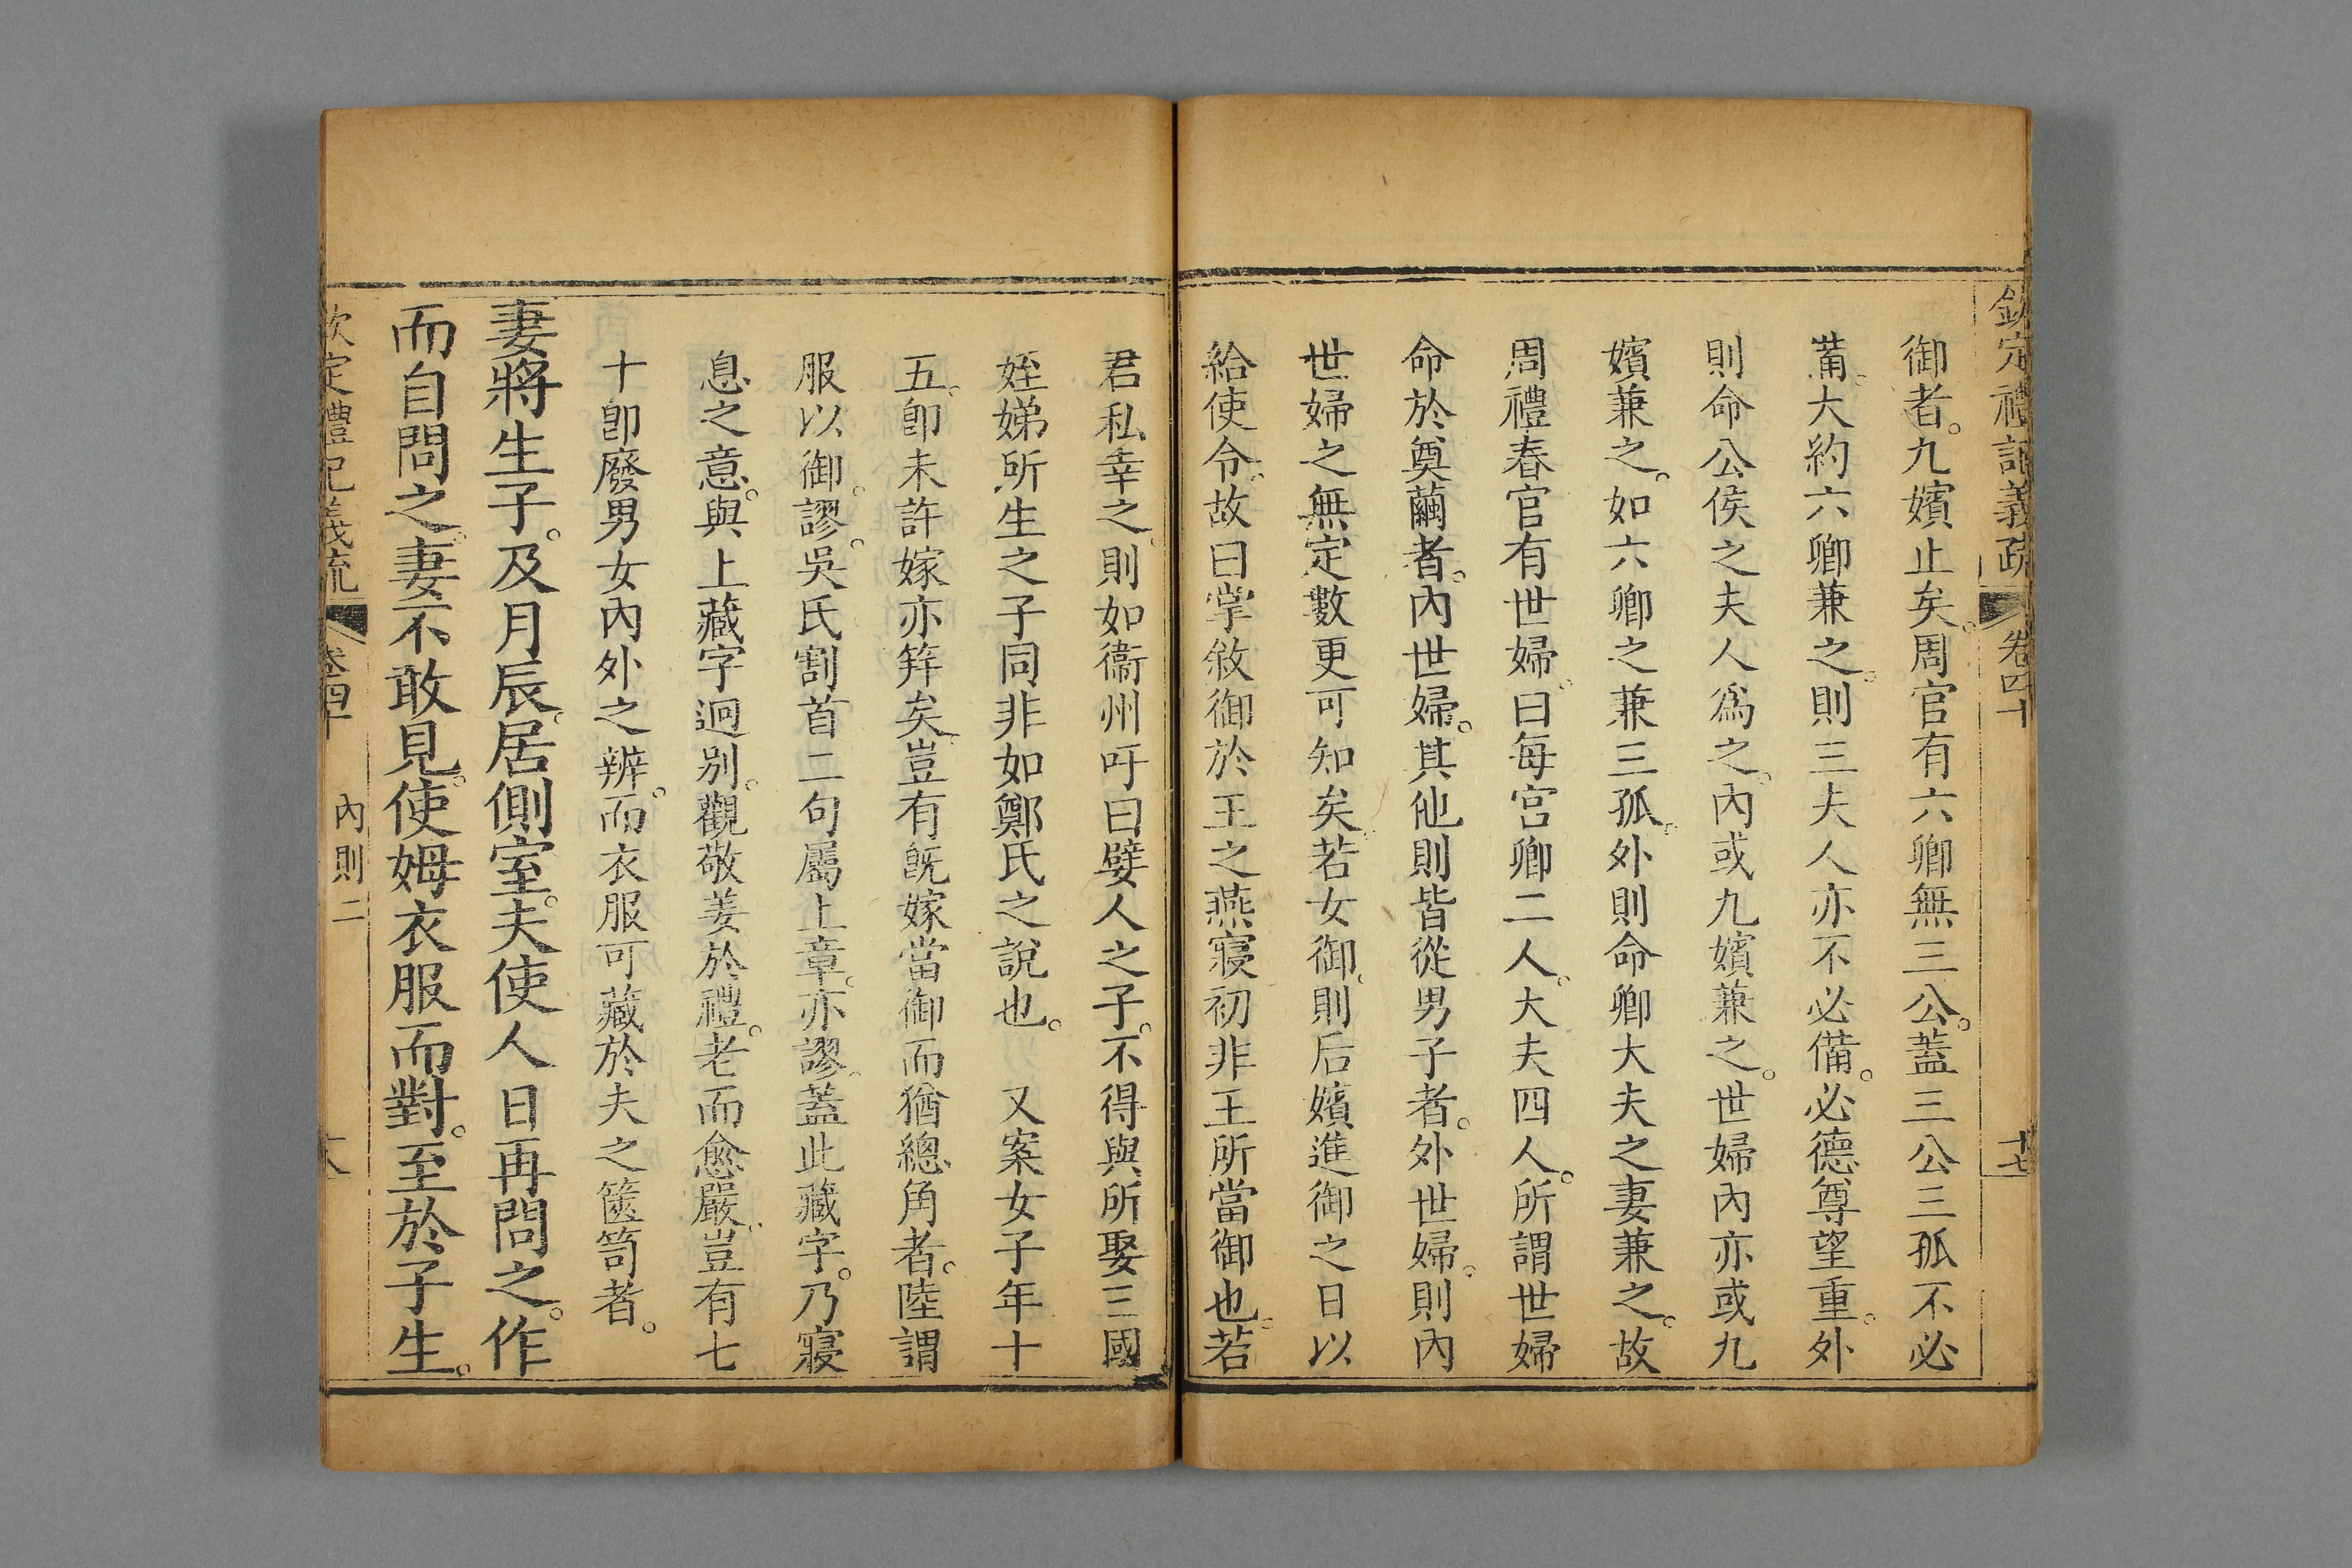 欽定禮記義疏 卷四十 十七
御者。九嬪止矣。周官有六卿無三公。蓋三公三孤不必
備。大約六卿兼之。則三夫人亦不必備。必德尊望重。外
則命公侯之夫人爲之。內或九嬪兼之。世婦內亦或九
嬪兼之。如六卿之兼三孤。外則命卿大夫之妻兼之。故
周禮春官有世婦。曰每宮卿二人。大夫四人。所謂世婦
命於奠繭者。內世婦。其他則皆從男子者。外世婦。則內
世婦之無定數更可知矣。若女御。則后嬪進御之日以
給使令。故曰掌敘御於王之燕寢。初非王所當御也。若
君私幸之。則如衞州吁曰嬖人之子。不得與所娶三國
姪娣所生之子同非如鄭氏之說也。 又案女子年十
五。卽未許嫁亦笄矣。豈有旣嫁當御而猶總角者。陸謂
服以御。謬。吳氏割首二句屬上章。亦謬。蓋此藏字。乃寢
息之意。與上藏字迥別。觀敬姜於禮。老而愈嚴。豈有七
十卽廢男女內外之辨。而衣服可藏於夫之篋笥者。
妻將生子。及月辰。居側室。夫使人日再問之。作
而自問之。妻不敢見。使姆衣服而對。至於子生。
欽定禮記義疏 卷四十 內則二 十八